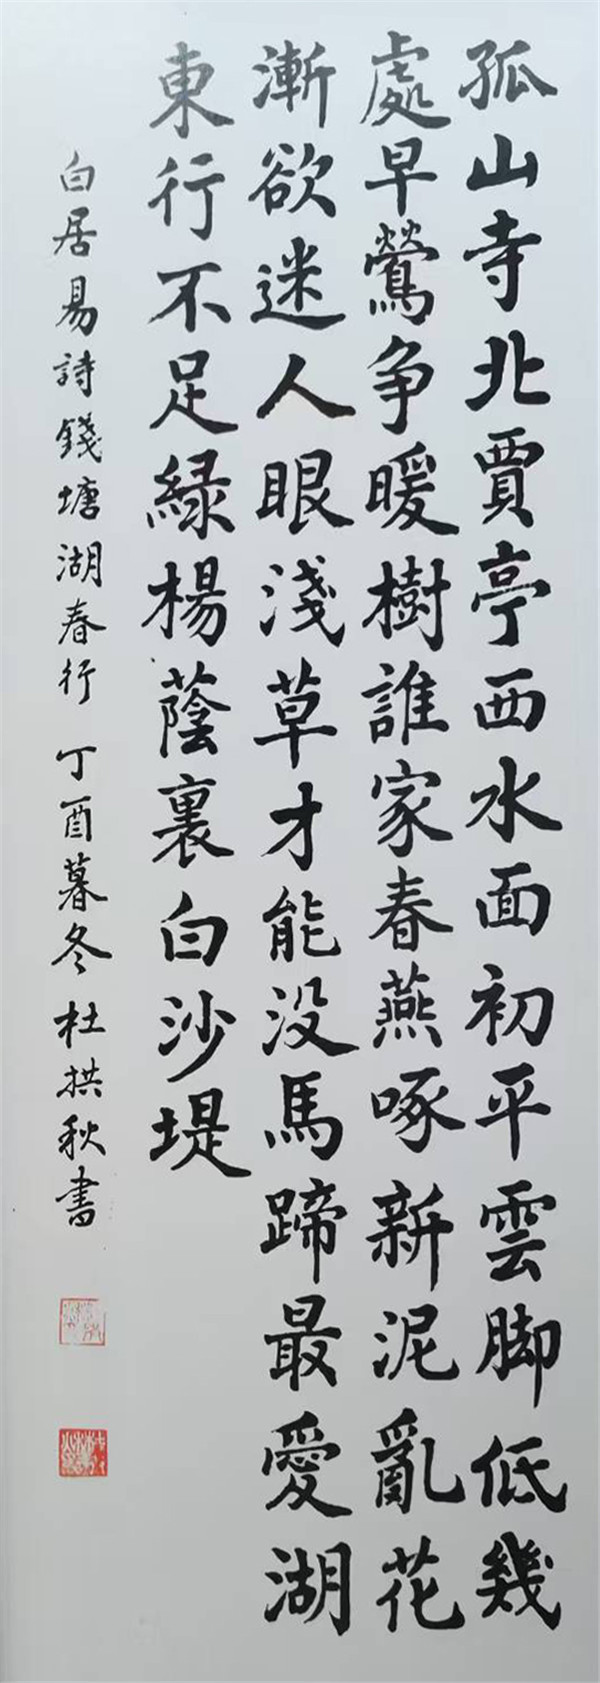 孤山寺北賈亭西水面初平雲脚低幾
處早鶯争暖樹誰家春燕啄新泥亂花
漸欲迷人眼淺草才能没馬蹄最愛湖
東行不足緑楊蔭裏白沙堤
白居易詩錢塘湖春行 丁酉暮冬 杜拱秋書